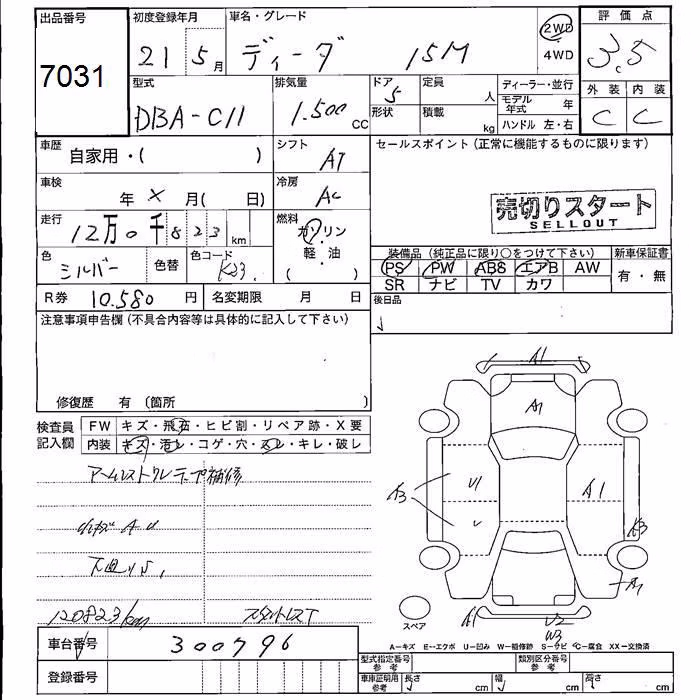 出品番号
7031
初度登録年月
21 5月
車名・グレード
ティーダ 15M
2WD
4WD
評価点
3.5
外装 内装
C C
型式
DBA-C11
排気量
1.500 CC
ドア
5
形状
定員
人
積載
kg
ディーラー・並行
モデル年式 年
ハンドル 左・右
車歴
自家用・( )
シフト
AT
セールスポイント(正常に機能するものに限ります)
売切りスタート
SELLOUT
車検
年 × 月( 日)
冷房
AC
走行
12万0千823km
燃料
ガソリン
軽・油
( )
色
シルバー
色替
色コード
K23.
装備品(純正品に限り○をつけて下さい)
PS PW ABS エアB AW
SR ナビ TV カワ
新車保証書
有・無
後日品
R券 10.580 円
名変期限 月 日
注意事項申告欄(不具合内容等は具体的に記入して下さい)
修復歴 有(箇所 )
検査員記入欄
FW キズ・飛石・ヒビ割・リペア跡・X要
内装 キズ・汚レ・コゲ・穴・スレ・キレ・破レ
120823km
車台番号
300796
登録番号
A1
A1
A3
U1
A1
A3
A1
A1
U2
W3
スペア
A-キズ E-エクボ U-凹み W-補修跡 S-サビ C-腐食 XX-交換済
型式指定番号
参考
類別区分番号
参考
車庫証明用
参考
長さ cm
幅 cm
高さ cm